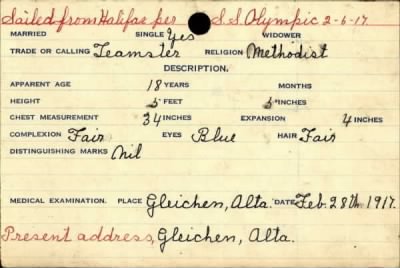 Sailed from Halifax per S.S. Olympic 2-6-17.
MARRIED SINGLE Yes WIDOWER
TRADE OR CALLING Teamster RELIGION Methodist
DESCRIPTION.
APPARENT AGE 18 YEARS MONTHS
HEIGHT 5 FEET 5 INCHES
CHEST MEASUREMENT 34 INCHES EXPANSION 4 INCHES
COMPLEXION Fair EYES Blue HAIR Fair
DISTINGUISHING MARKS Nil
MEDICAL EXAMINATION. PLACE Gleichen, Alta. DATE Feb. 28th 1917.
Present address, Gleichen, Alta.